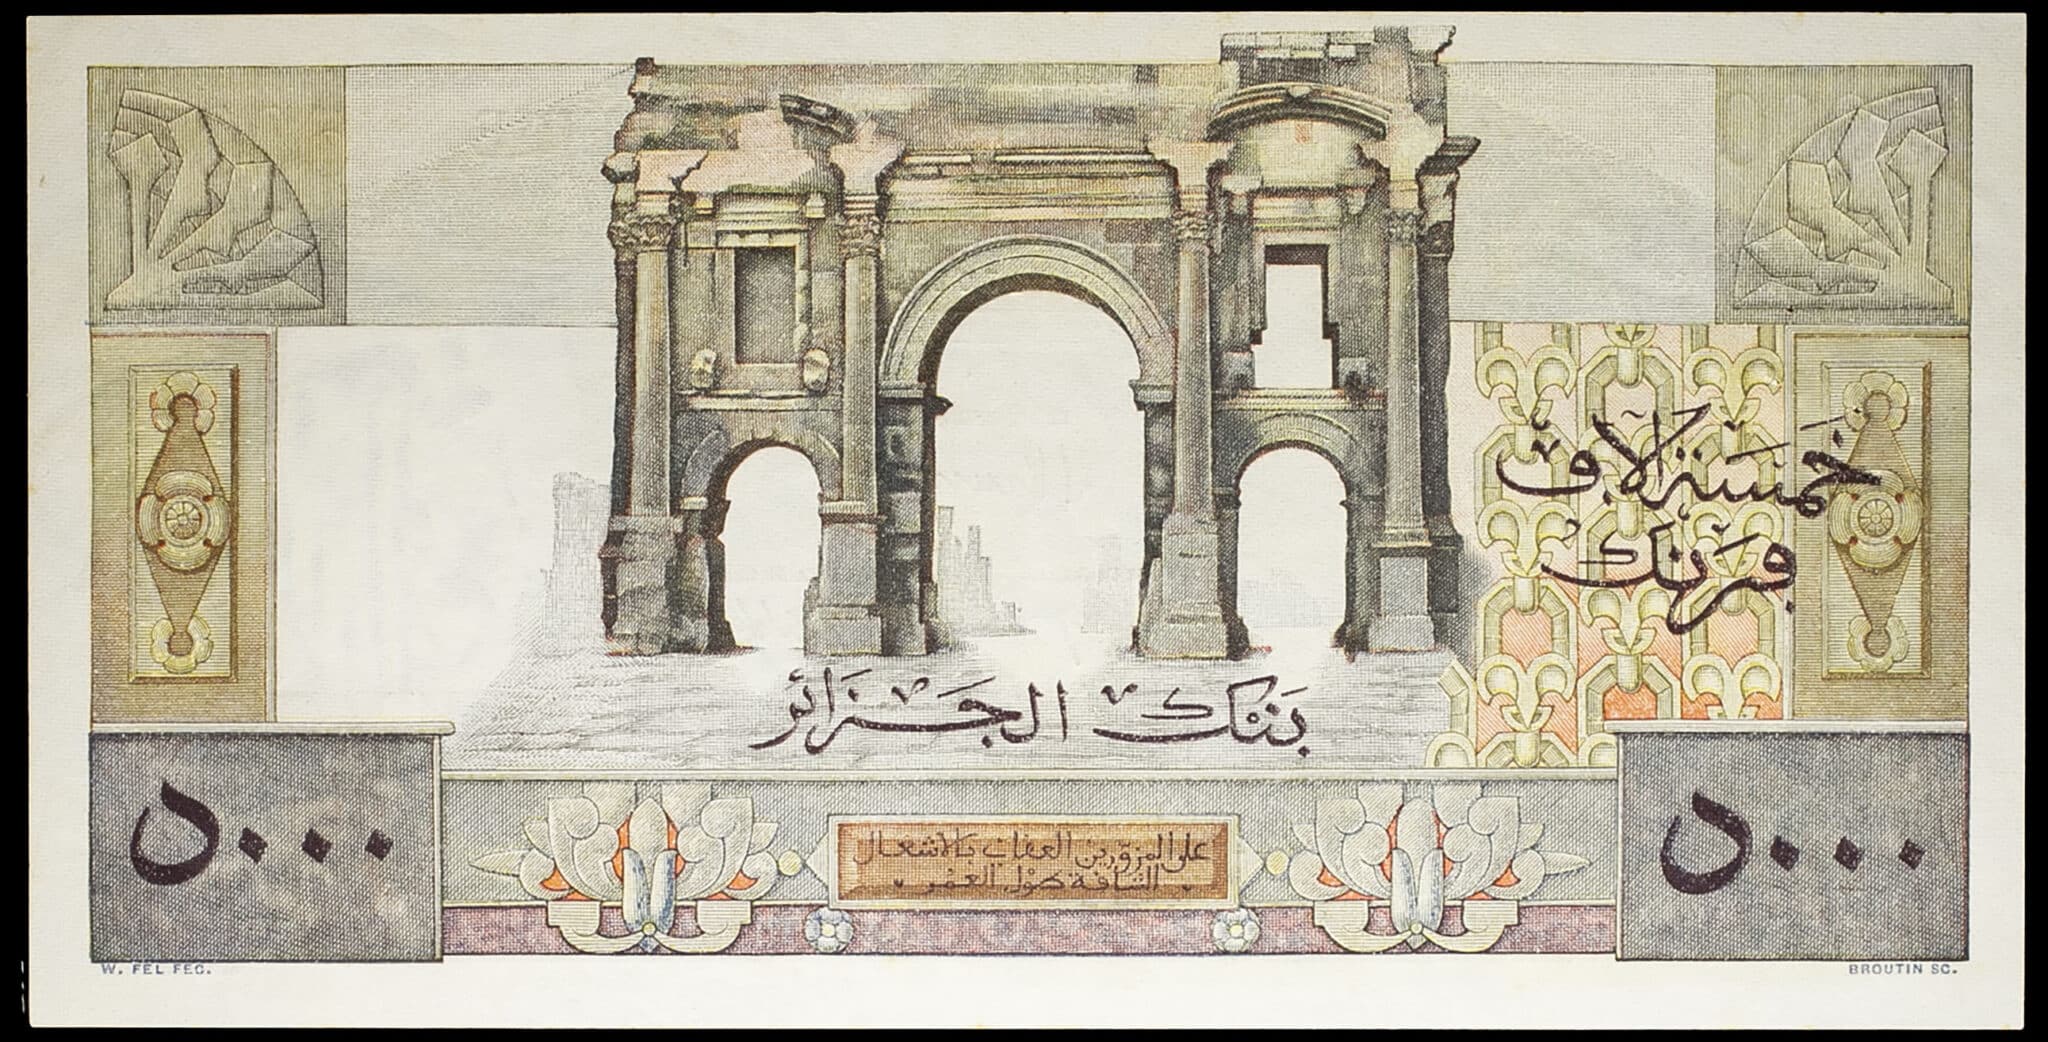 خمسة آلاف
فرنك
بنك الجزائر
٥٠٠٠
على المزورين العقاب بالاشغال
الشاقة طول العمر
٥٠٠٠
W. FEL FEC.
BROUTIN SC.